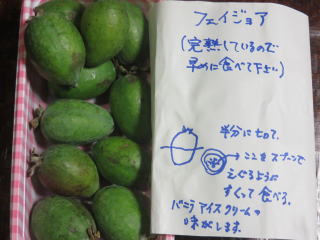 フェイジョア
(完熟しているので
早めに食べて下さい)
半分に切て、
ここをスプーンで
えぐるように
すくって食べる。
バニラアイスクリームの
味がします。